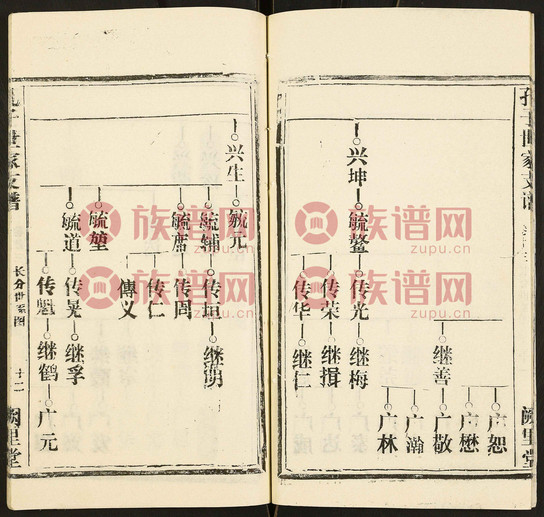 孔子世家支谱
阙里堂
广恕
广懋
继善
广敬
广瀚
广林
兴坤
毓鳌
传光
继梅
传荣
继揖
传华
继仁
兴生
毓元
毓辅
传垣
继明
毓席
传周
传仁
傳义
毓堃
毓道
传晃
继孚
传魁
继鹤
广元
孔子世家支谱
长分世系图
十二
阙里堂
族谱网
zupu.cn
族谱网
zupu.cn
族谱网
zupu.cn
族谱网
zupu.cn